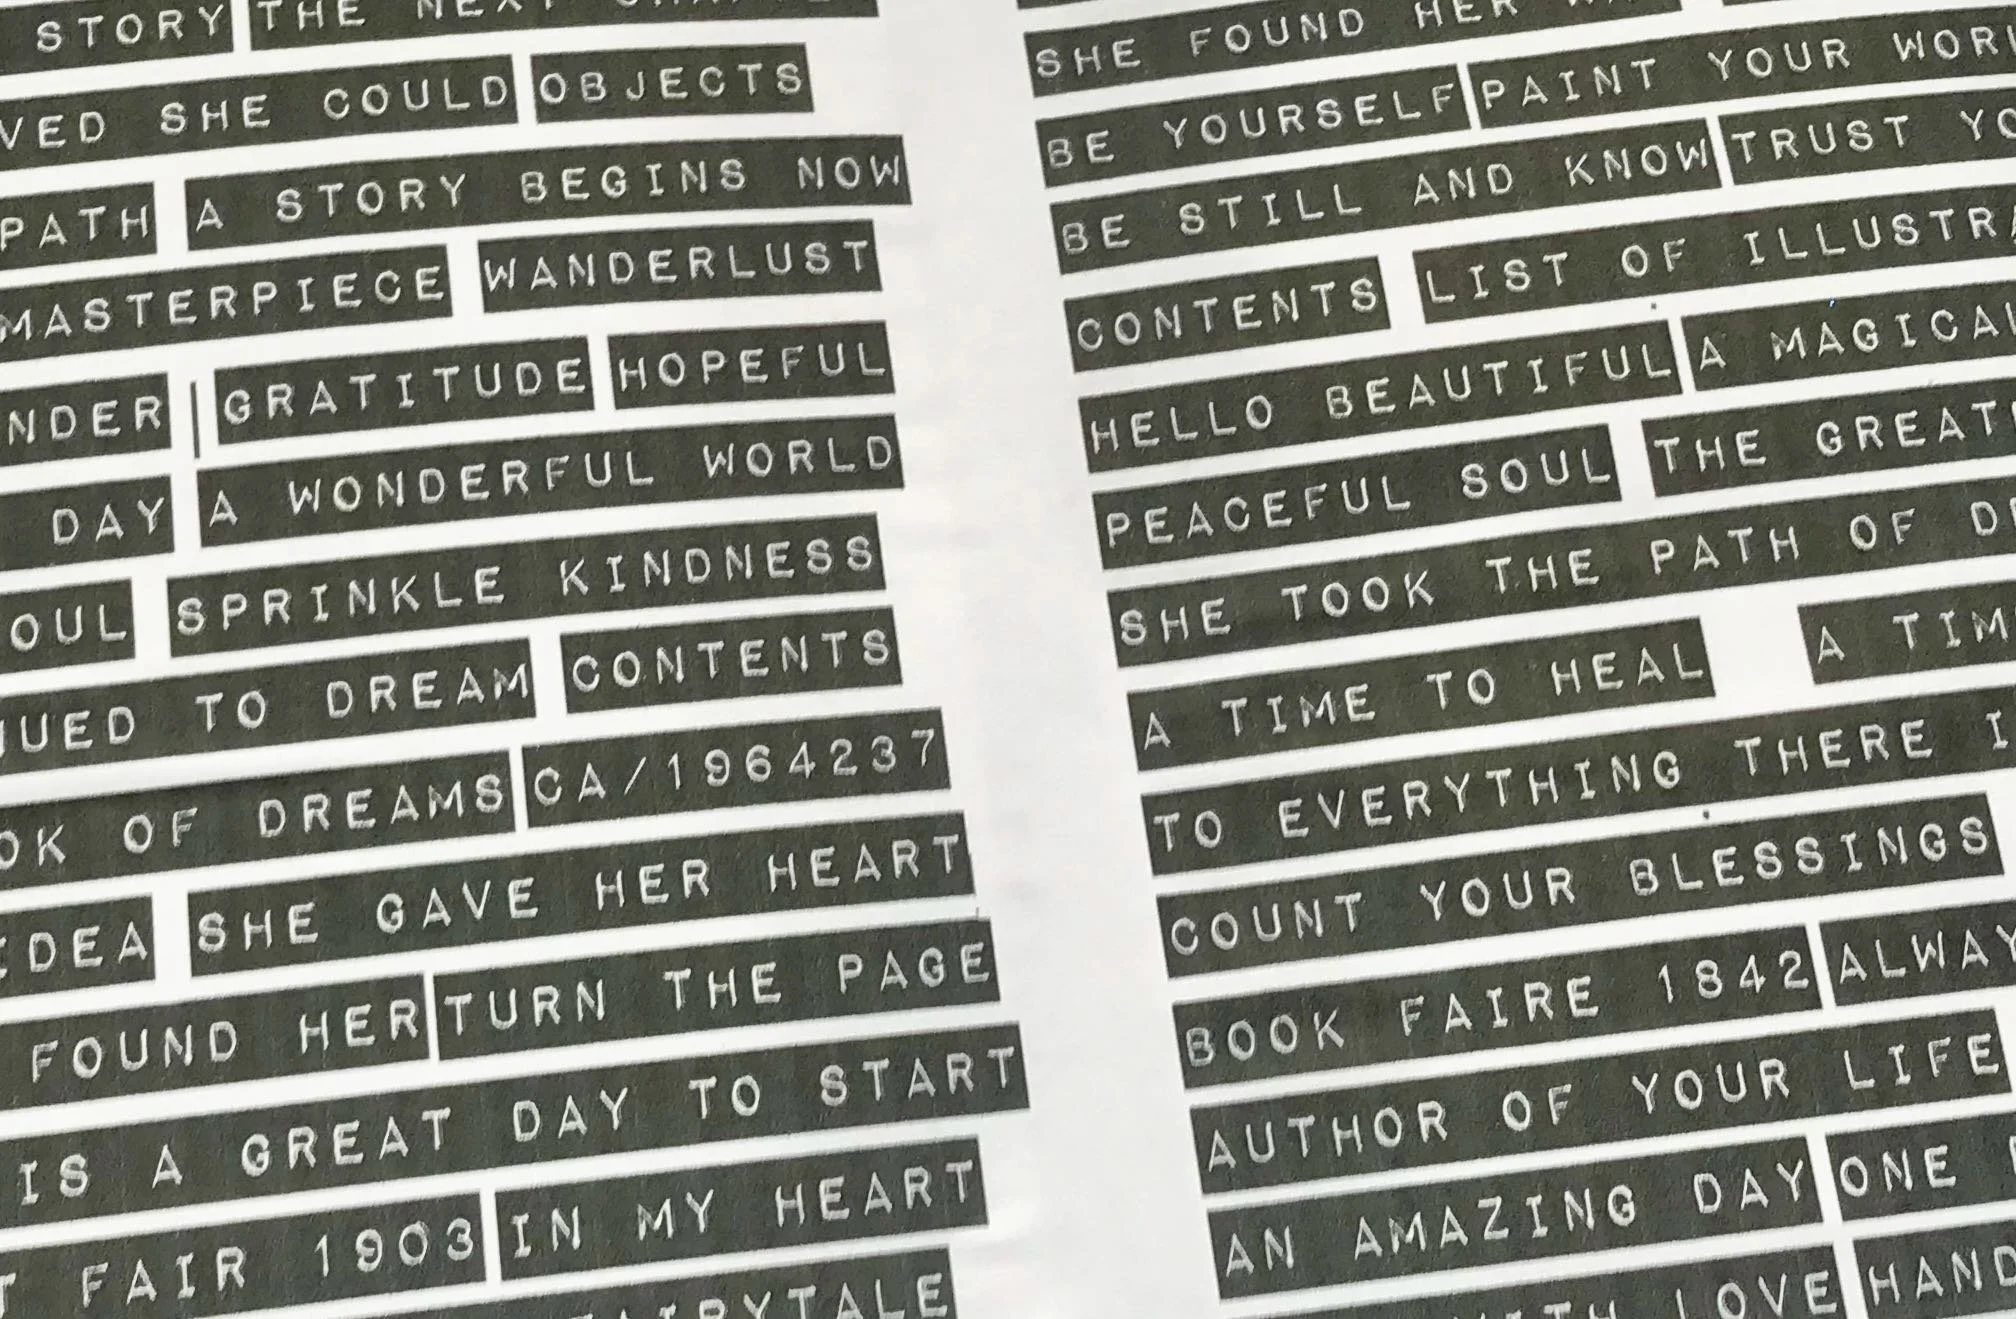 STORY THE
SHE COULD OBJECTS
PATH A STORY BEGINS NOW
MASTERPIECE WANDERLUST
GRATITUDE HOPEFUL
DAY A WONDERFUL WORLD
SPRINKLE KINDNESS
TO DREAM CONTENTS
OF DREAMS CA/1964237
SHE GAVE HER HEART
FOUND HER TURN THE PAGE
IS A GREAT DAY TO START
FAIR 1903 IN MY HEART
FAIRYTALE
SHE FOUND HER
BE YOURSELF PAINT YOUR
BE STILL AND KNOW TRUST
CONTENTS LIST OF
HELLO BEAUTIFUL A
PEACEFUL SOUL THE
SHE TOOK THE PATH OF
A TIME TO HEAL A
TO EVERYTHING THERE
COUNT YOUR BLESSINGS
BOOK FAIRE 1842
AUTHOR OF YOUR LIFE
AN AMAZING DAY ONE
WITH LOVE